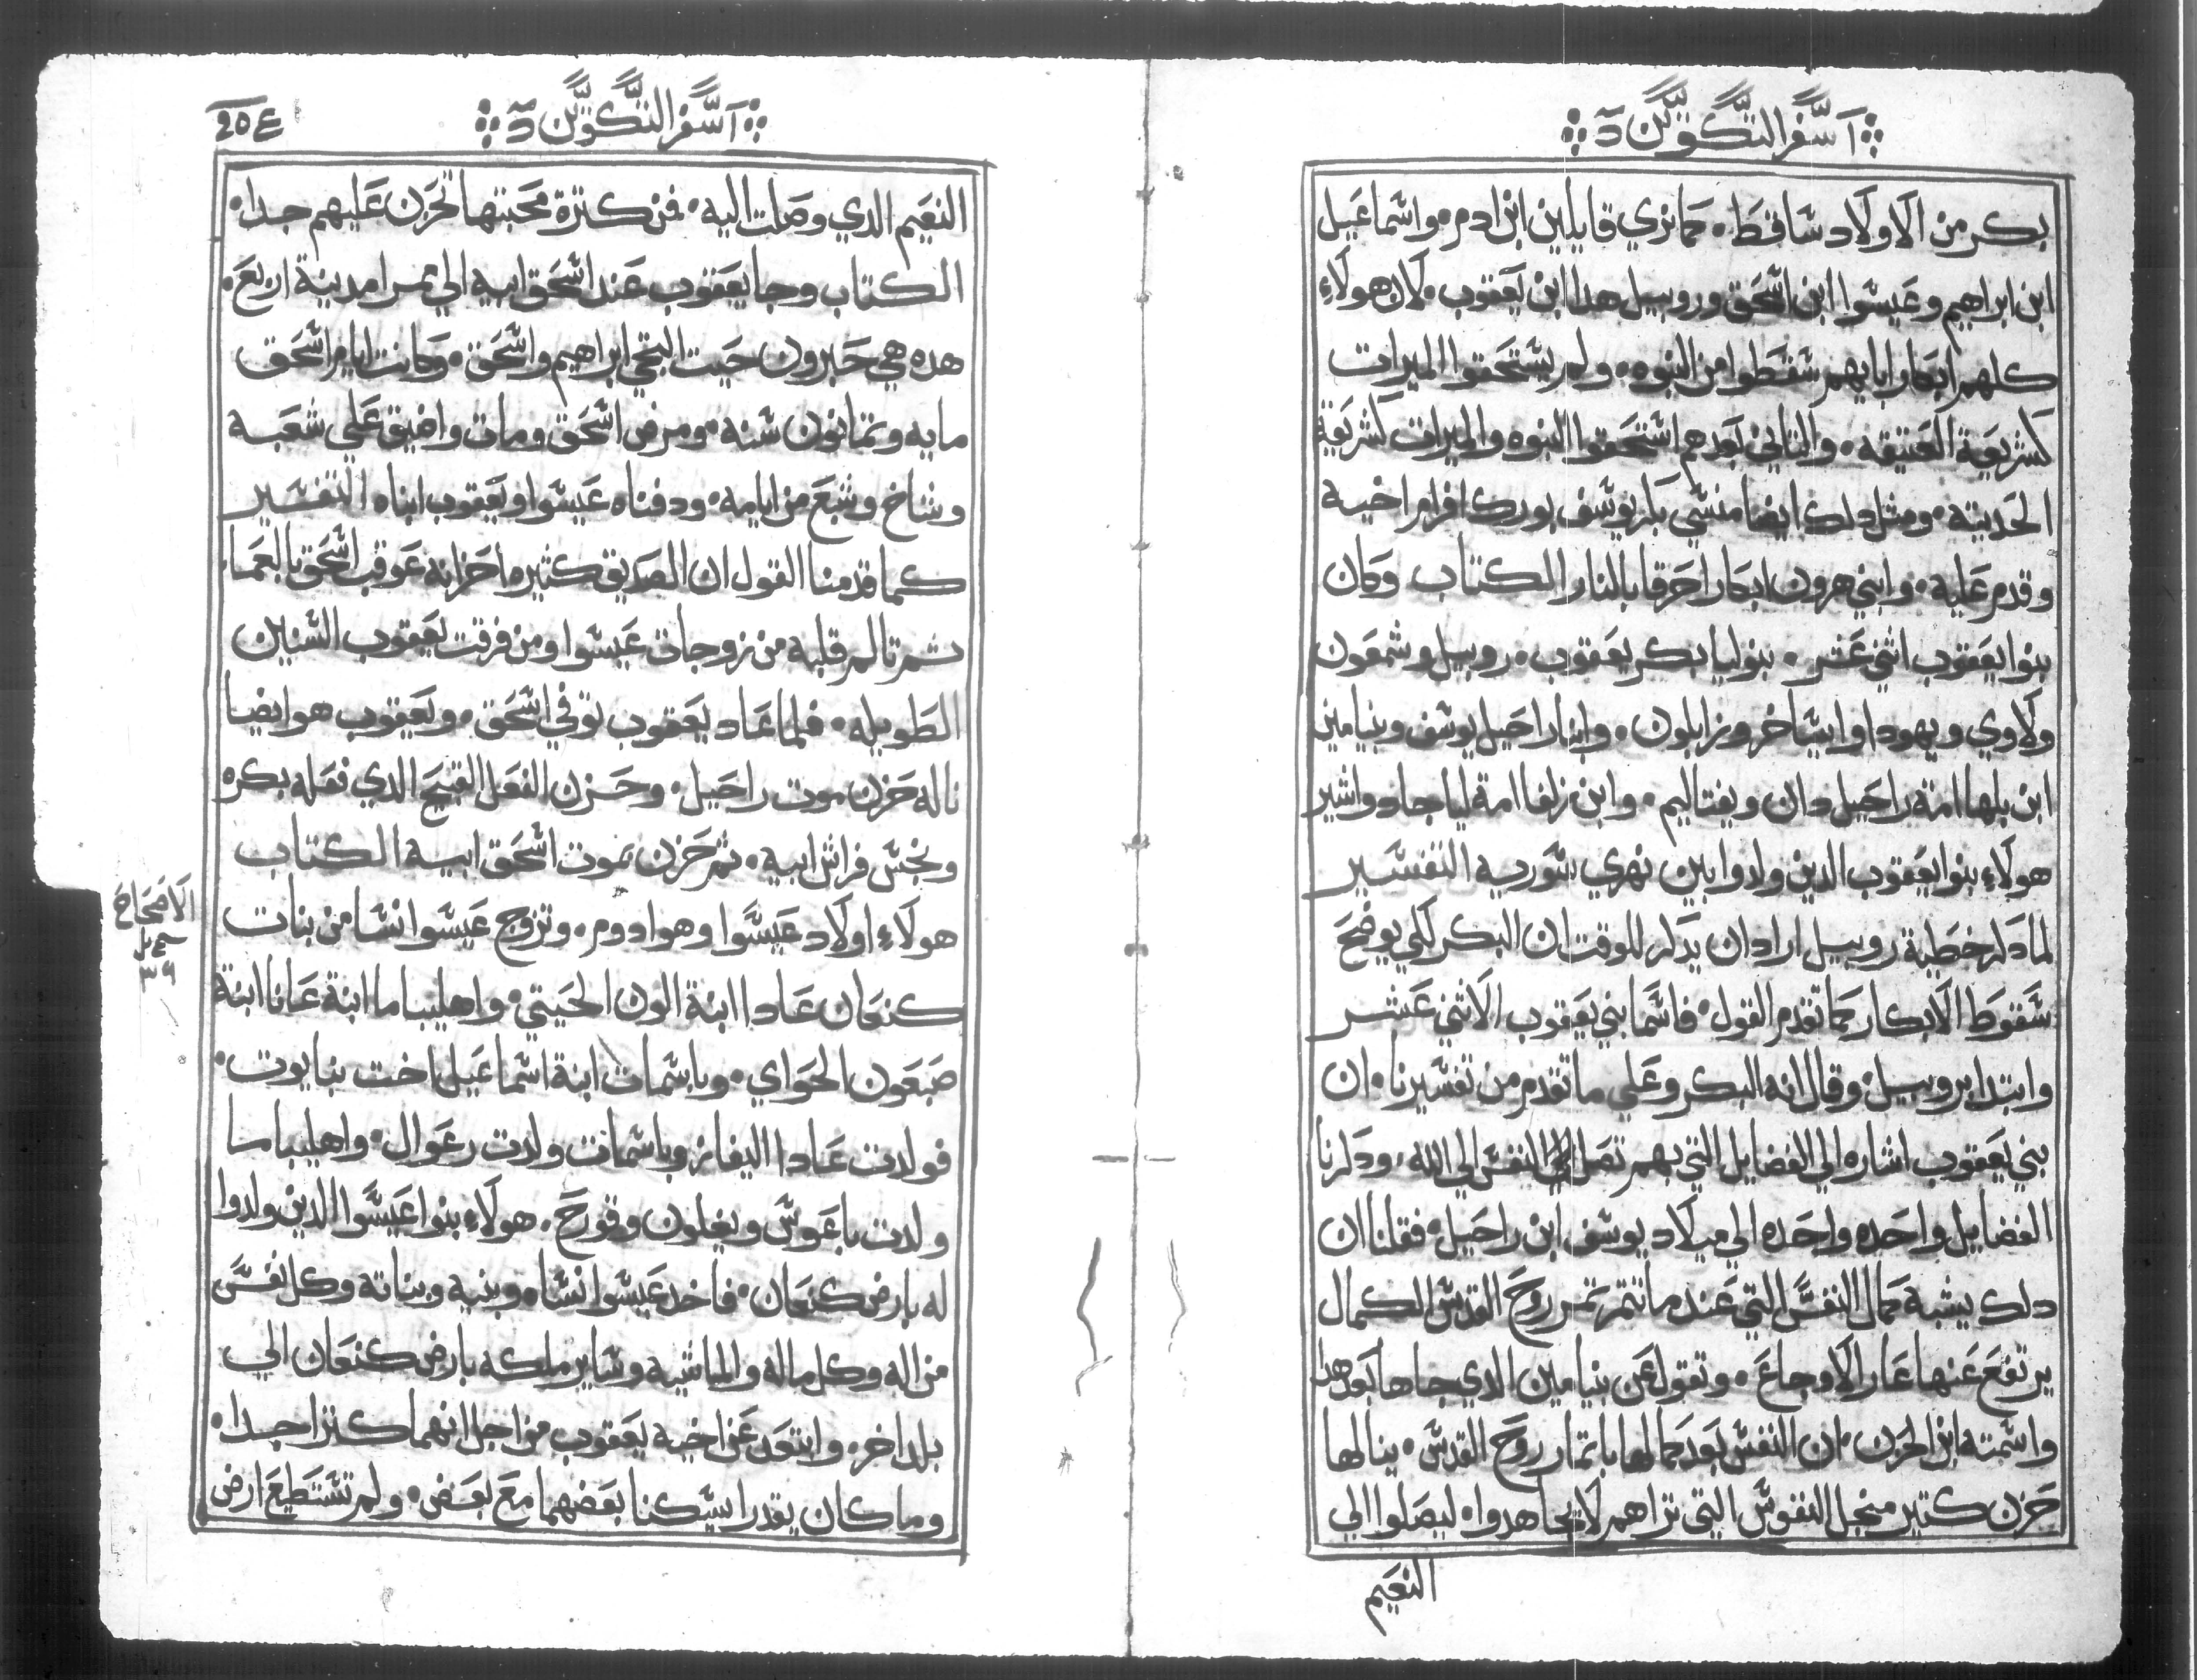 سفر التكوين
بكر من الاولاد ساقط. كما نري قايين ابن ادم. واسماعيل
ابن ابراهيم وعيسوا ابن اسحق وروبيل هدا ابن يعقوب. لان هولاء
كلهم ابكار ابايهم سقطوا من النبوه. ولم يستحقوا الميرات
كشريعة العتيقه. والتاني بعدهم استحقوا النبوه والميرات كشريعة
الحديته. ومثل دلك ايضا منسي بكر يوسف بورك افرام اخيه
وقدم عليه. وابني هرون ابكار احرقا بالنار الكتاب وكان
بنوا يعقوب اثني عشر. بنو ليا بكر يعقوب. روبيل وشمعون
ولاوي ويهودا وايساخر وزابلون. وابنا راحيل يوسف وبنيامين
ابن بلها امة راحيل دان ونفتاليم. وابن زلفا امة ليا جاد واشير
هولاء بنوا يعقوب الدين ولدوا بين نهري سورية التفسير
لما دكر خطية روبيل اراد ان يدكر للوقت ان البكر لكي يوضح
سقوط الابكار كما تقدم القول. فاسما بني يعقوب الاثني عشر
وابتدا بروبيل. وقال انه البكر وعلي ما تقدم من تفسيرنا. ان
بني يعقوب اشاره الي الفضايل التي بهم تصل النفس الي الله. ودكرنا
الفضايل واحده واحده الي ميلاد يوسف ابن راحيل. فقلنا ان
دلك يشبه كمال النفس التي عند ما تتمر تمر روح القدس الكمال
يرتفع عنها عار الاوجاع. وتقول عن بنيامين الدي جاها بعد هدا
واسمته ابن الحزن. ان النفس بعد كمالها باتمار روح القدس. ينالها
حزن كتير منجل النفوس التي تراهم لا يجاهدوا. ليصلوا الي
النعيم
سفر التكوين
النعيم الدي وصلت اليه. فمن كترة محبتها تحزن عليهم جدا.
الكتاب وجا يعقوب عند اسحق ابيه الي ممرا مدينة اربع.
هده هي حبرون حيت التجي ابراهيم واسحق. وكانت ايام اسحق
مايه وتمانون سنه. ومرض اسحق ومات واضيق علي شعبه
وشاخ وشبع من ايامه. ودفناه عيسوا ويعقوب ابناه التفسير
كما قدمنا القول ان الصديق كثيره احزانه عوقب اسحق بالعما.
تم تالم قلبه من زوجات عيسوا ومن فرقت يعقوب السنين
الطويله. فلما عاد يعقوب توفي اسحق. ويعقوب هو ايضا
ناله حزن موت راحيل. وحزن الفعل القبيح الدي فعله بكره
ونجس فراش ابيه. تم حزن بموت اسحق ابيه الكتاب
الاصحاح
٣٦
هولاء اولاد عيسوا وهو ادوم. وتزوج عيسوا نسا من بنات
كنعان عادا ابنة الون الحيتي. واهليباما ابنة عانا ابنة
صبعون الحواي. وباسمات ابنة اسماعيل اخت نبايوت.
فولدت عادا اليفاز وباسمات ولدت رعوال. واهليباما
ولدت ياعوس ويغلون وقورح. هولاء بنوا عيسوا الدين ولدوا
له بارض كنعان. فاخد عيسوا نساه وبنيه وبناته وكل نفس
من اله وكل ماله والماشيه وساير ملكه بارض كنعان الي
بلد اخر. وابتعد عن اخيه يعقوب من اجل انهما كترا جدا.
وما كان يقدرا يسكنا بعضهما مع بعض. ولم تستطيع ارض